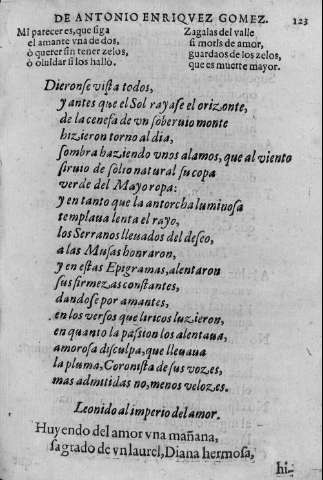 DE ANTONIO ENRIQVEZ GOMEZ. 123
Mi parecer es, que siga
el amante vna de dos,
ò querer sin tener zelos,
ò oluidar si los hallò.
Zagalas del valle
si moris de amor,
guardaos de los zelos,
que es muerte mayor.
Dieronse vista todos,
y antes que el Sol rayase el orizonte,
de la cenefa de vn soberuio monte
hizieron torno al dia,
sombra haziendo vnos alamos, que al viento
siruio de solio natural su copa
verde del Mayo ropa:
y en tanto que la antorcha luminosa
templaua lenta el rayo,
los Serranos lleuados del deseo,
a las Musas honraron,
y en estas Epigramas, alentaron
sus firmezas constantes,
dandose por amantes,
en los versos que liricos luzieron,
en quanto la passion los alentaua,
amorosa disculpa, que lleuaua
la pluma, Coronista de sus vozes,
mas admitidas no, menos velozes.
Leonido al imperio del amor.
Huyendo del amor vna mañana,
sagrado de vn laurel, Diana hermosa,
hi-